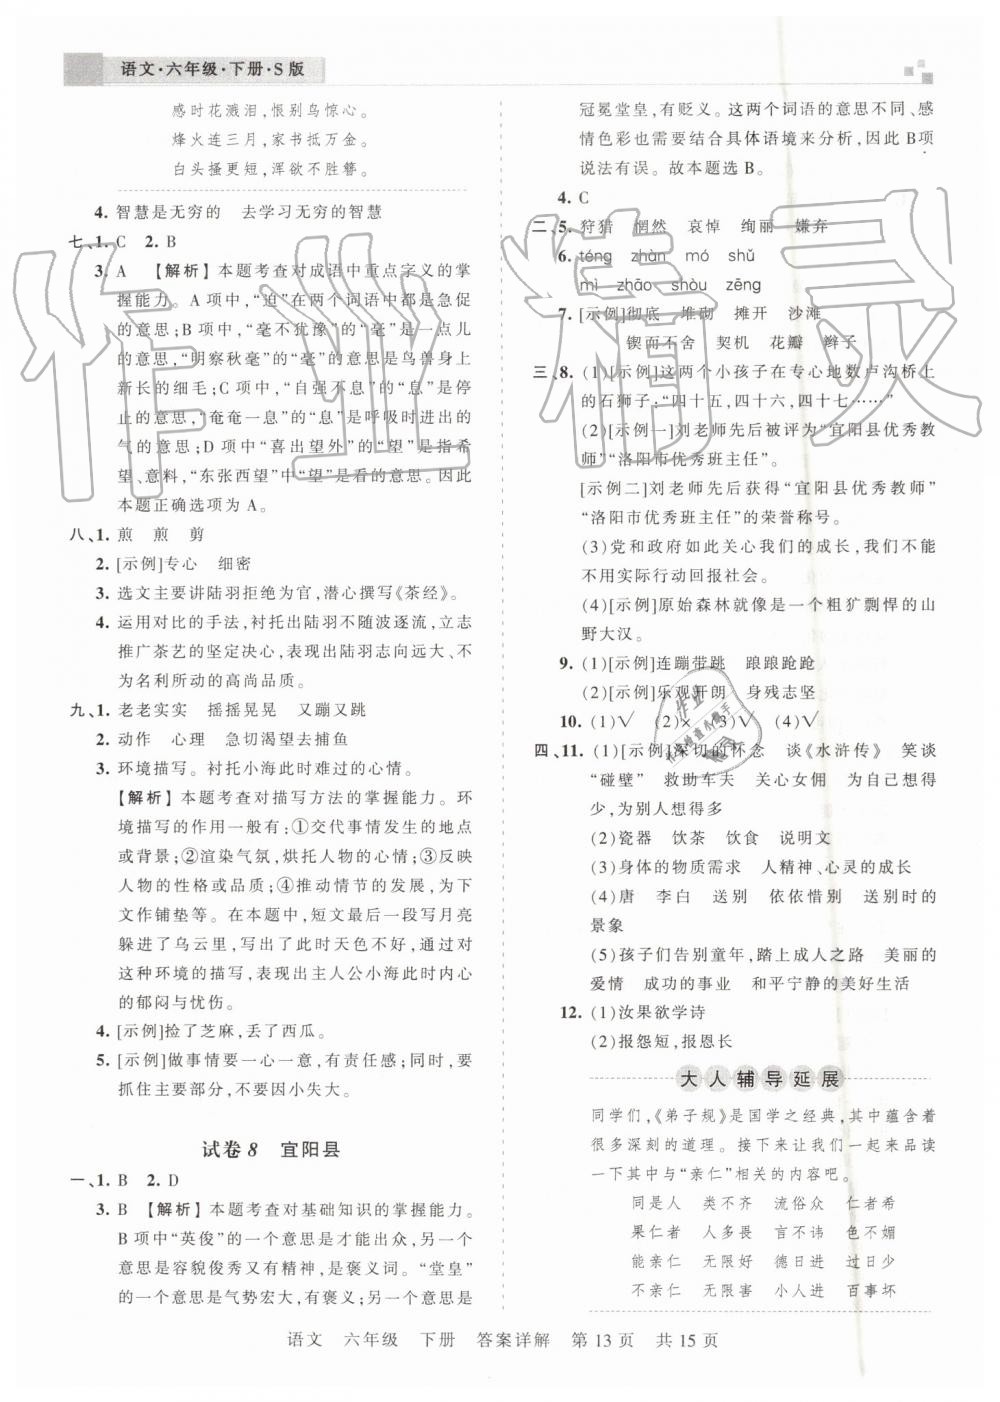 语文·六年级·下册·S版
感时花溅泪，恨别鸟惊心。
烽火连三月，家书抵万金。
白头搔更短，浑欲不胜簪。
4. 智慧是无穷的　去学习无穷的智慧
七、1. C　2. B
3. A　【解析】本题考查对成语中重点字义的掌
握能力。A 项中，“迫”在两个词语中都是急促
的意思；B 项中，“毫不犹豫”的“毫”是一点儿
的意思，“明察秋毫”的“毫”的意思是鸟兽身上
新长的细毛；C 项中，“自强不息”的“息”是停
止的意思，“奄奄一息”的“息”是呼吸时进出的
气的意思；D 项中“喜出望外”的“望”是指希
望、意料，“东张西望”中“望”是看的意思。因此
本题正确选项为 A。
八、1. 煎　煎　剪
2. [示例]专心　细密
3. 选文主要讲陆羽拒绝为官，潜心撰写《茶经》。
4. 运用对比的手法，衬托出陆羽不随波逐流，立志
推广茶艺的坚定决心，表现出陆羽志向远大、不
为名利所动的高尚品质。
九、1. 老老实实　摇摇晃晃　又蹦又跳
2. 动作　心理　急切渴望去捕鱼
3. 环境描写。衬托小海此时难过的心情。
【解析】本题考查对描写方法的掌握能力。环
境描写的作用一般有：①交代事情发生的地点
或背景；②渲染气氛，烘托人物的心情；③反映
人物的性格或品质；④推动情节的发展，为下
文作铺垫等。在本题中，短文最后一段写月亮
躲进了乌云里，写出了此时天色不好，通过对
这种环境的描写，表现出主人公小海此时内心
的郁闷与忧伤。
4. [示例]捡了芝麻，丢了西瓜。
5. [示例]做事情要一心一意，有责任感；同时，要
抓住主要部分，不要因小失大。
试卷 8　宜阳县
一、1. B　2. D
3. B　【解析】本题考查对基础知识的掌握能力。
B 项中“英俊”的一个意思是才能出众，另一个
意思是容貌俊秀又有精神，是褒义词。“堂皇”
的一个意思是气势宏大，有褒义；另一个意思是
冠冕堂皇，有贬义。这两个词语的意思不同、感
情色彩也需要结合具体语境来分析，因此 B项
说法有误。故本题选 B。
4. C
二、5. 狩猎　惘然　哀悼　绚丽　嫌弃
6. téng　zhàn　mó　shǔ
mì　zhāo　shòu　zēng
7. [示例]彻底　堆砌　摊开　沙滩
锲而不舍　契机　花瓣　辫子
三、8. (1)[示例]这两个小孩子在专心地数卢沟桥上
的石狮子：“四十五，四十六，四十七……”
(2)[示例一]刘老师先后被评为“宜阳县优秀教
师”“洛阳市优秀班主任”。
[示例二]刘老师先后获得“宜阳县优秀教师”
“洛阳市优秀班主任”的荣誉称号。
(3)党和政府如此关心我们的成长，我们不能
不用实际行动回报社会。
(4)[示例]原始森林就像是一个粗犷剽悍的山
野大汉。
9. (1)[示例]连蹦带跳　踉踉跄跄
(2)[示例]乐观开朗　身残志坚
10. (1)√　(2)×　(3)√　(4)√
四、11. (1)[示例]深切的怀念　谈《水浒传》　笑谈
“碰壁”　救助车夫　关心女佣　为自己想得
少，为别人想得多
(2)瓷器　饮茶　饮食　说明文
(3)身体的物质需求　人精神、心灵的成长
(4)唐　李白　送别　依依惜别　送别时的
景象
(5)孩子们告别童年，踏上成人之路　美丽的
爱情　成功的事业　和平宁静的美好生活
12. (1)汝果欲学诗
(2)报怨短，报恩长
大人辅导延展
同学们，《弟子规》是国学之经典，其中蕴含着
很多深刻的道理。接下来让我们一起来品读
一下其中与“亲仁”相关的内容吧。
同是人　类不齐　流俗众　仁者希
果仁者　人多畏　言不讳　色不媚
能亲仁　无限好　德日进　过日少
不亲仁　无限害　小人进　百事坏
语文　六年级　下册　答案详解　第 13 页　共 15 页
作业精灵